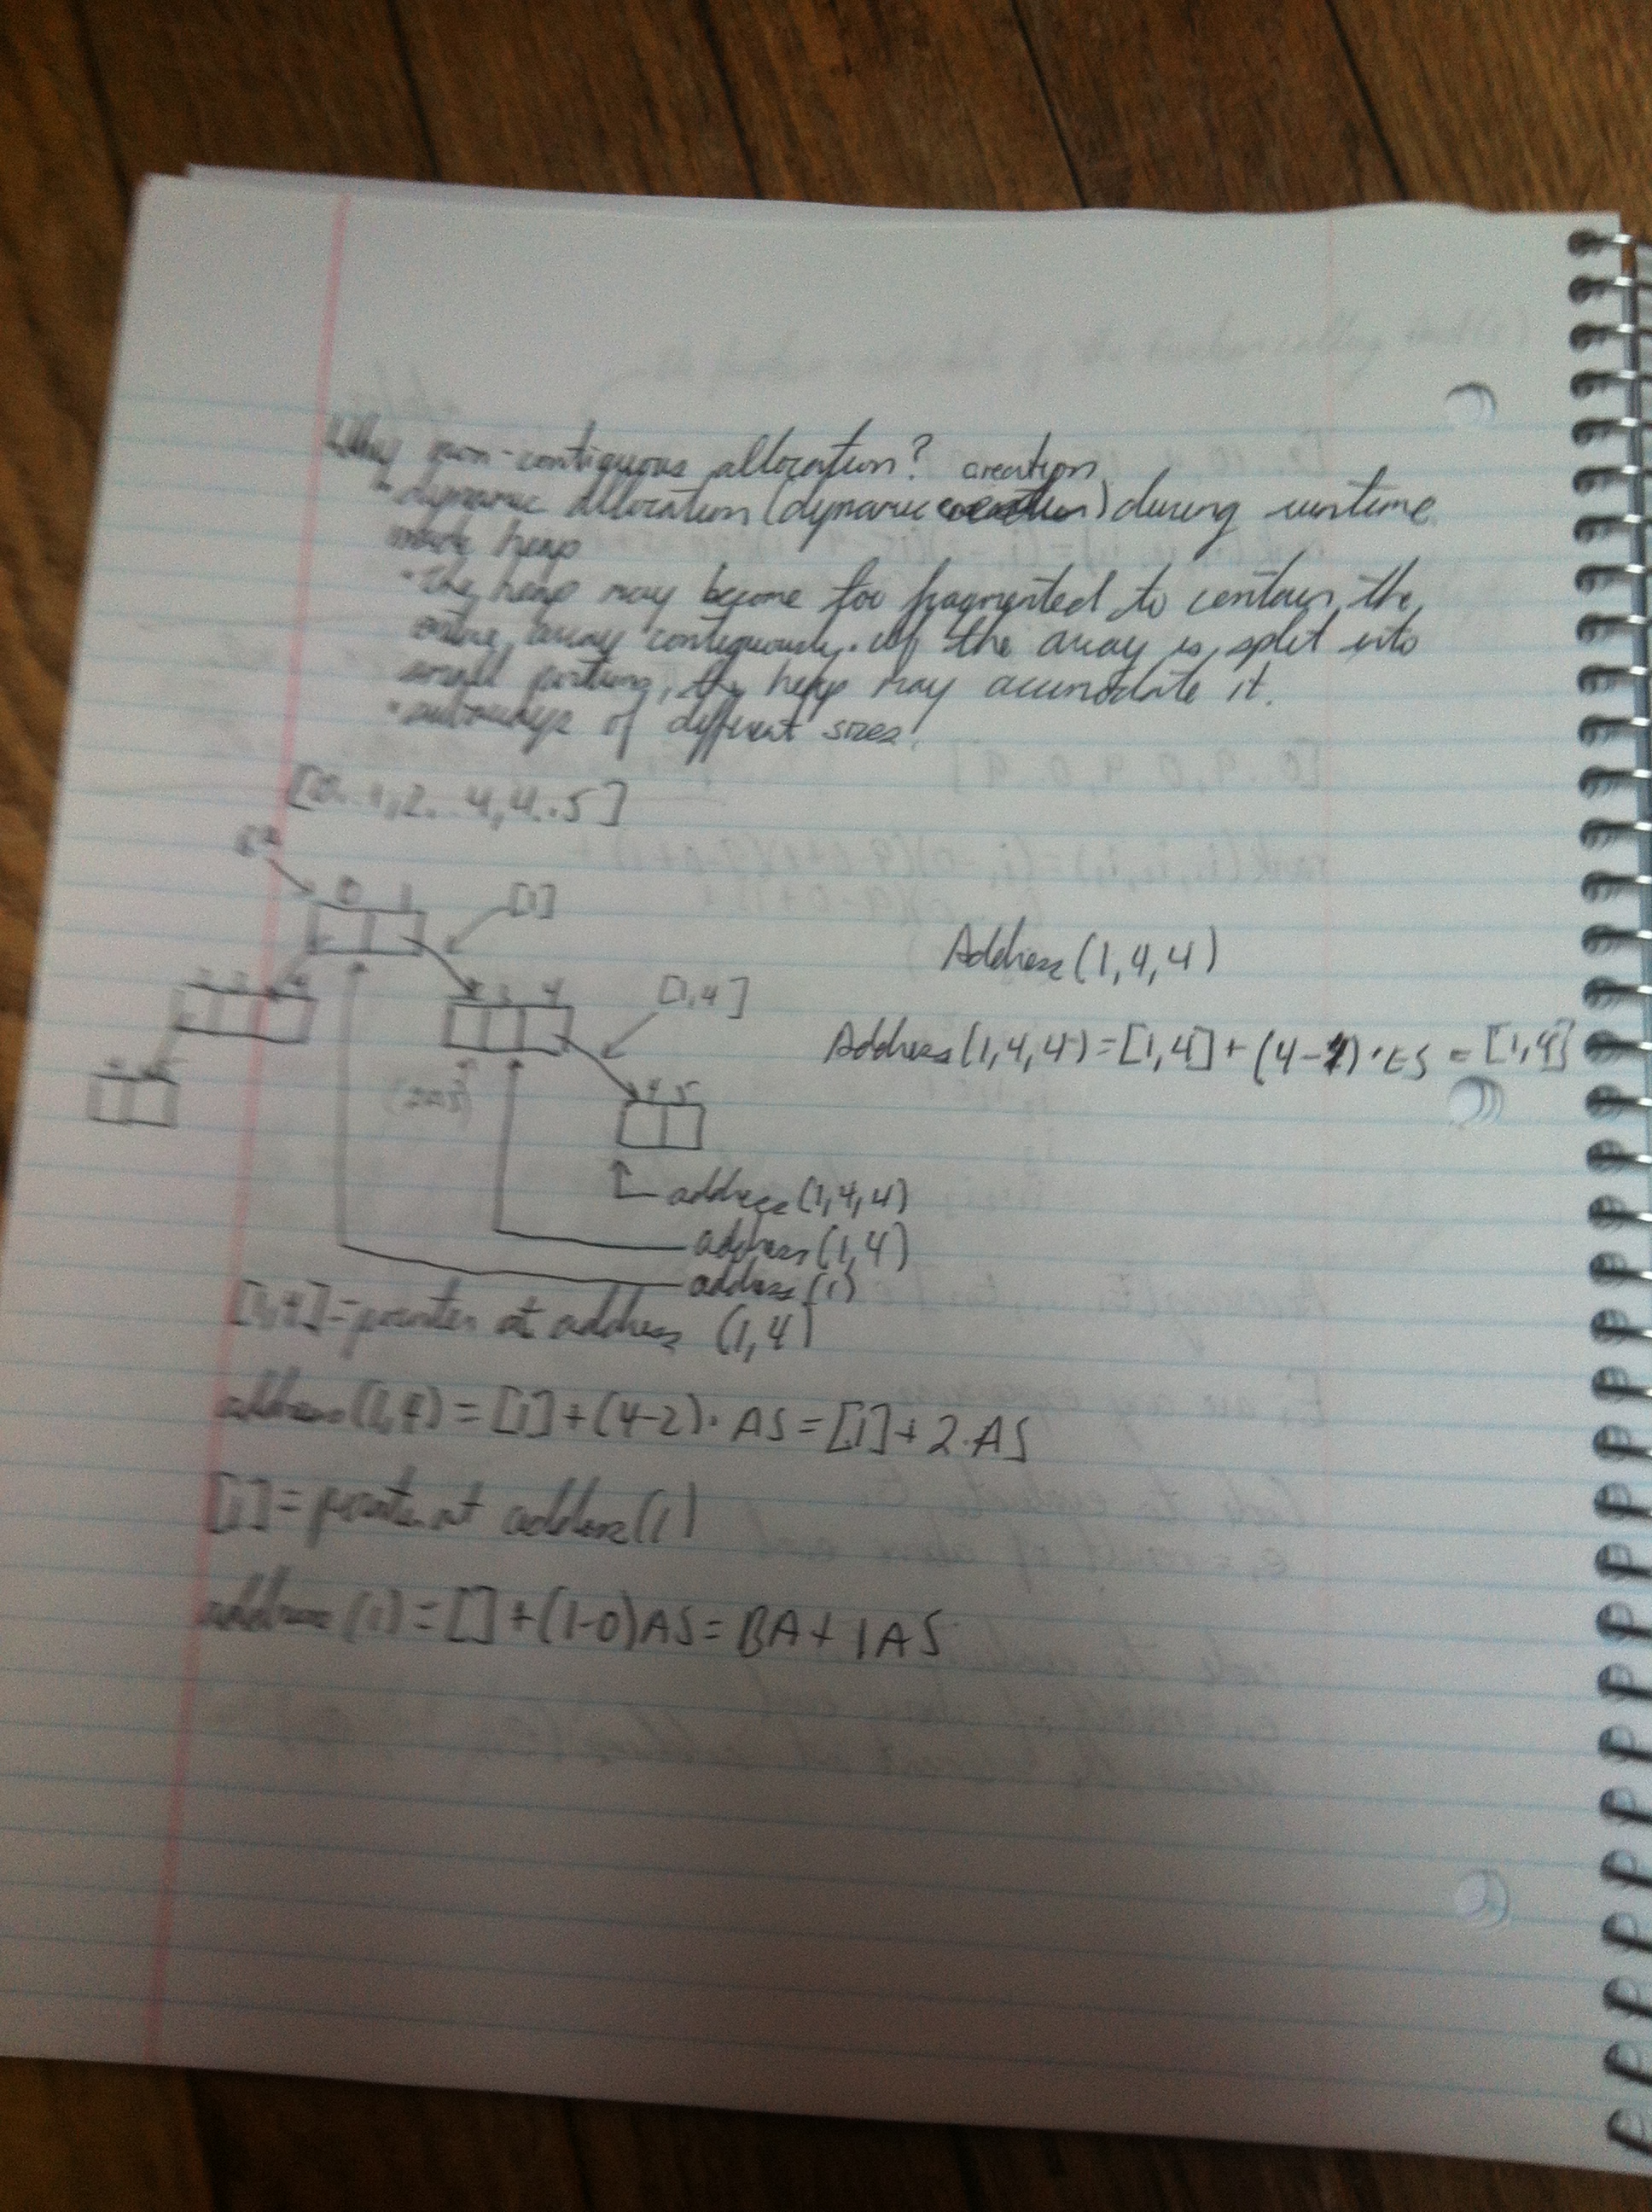 Why non-contiguous allocation? creation
• dynamic allocation (dynamic) during runtime
heap
• the heap may become too fragmented to contain the
entire array contiguously. If the array is split into
small portions, the heap may accomodate it.
• subarrays of different sizes.
[0..1,2..4,4..5]
0 1
[1]
2 3 4
3 4
[1,4]
Address(1,4,4)
Address(1,4,4)=[1,4]+(4-4)·ES=[1,4]
4 5
(2AS)
4 5
address(1,4,4)
address(1,4)
address(1)
[1,4]=pointer at address (1,4)
address(1,4)=[1]+(4-2)·AS=[1]+2·AS
[1]=pointer at address(1)
address(1)=[]+(1-0)AS=BA+1AS